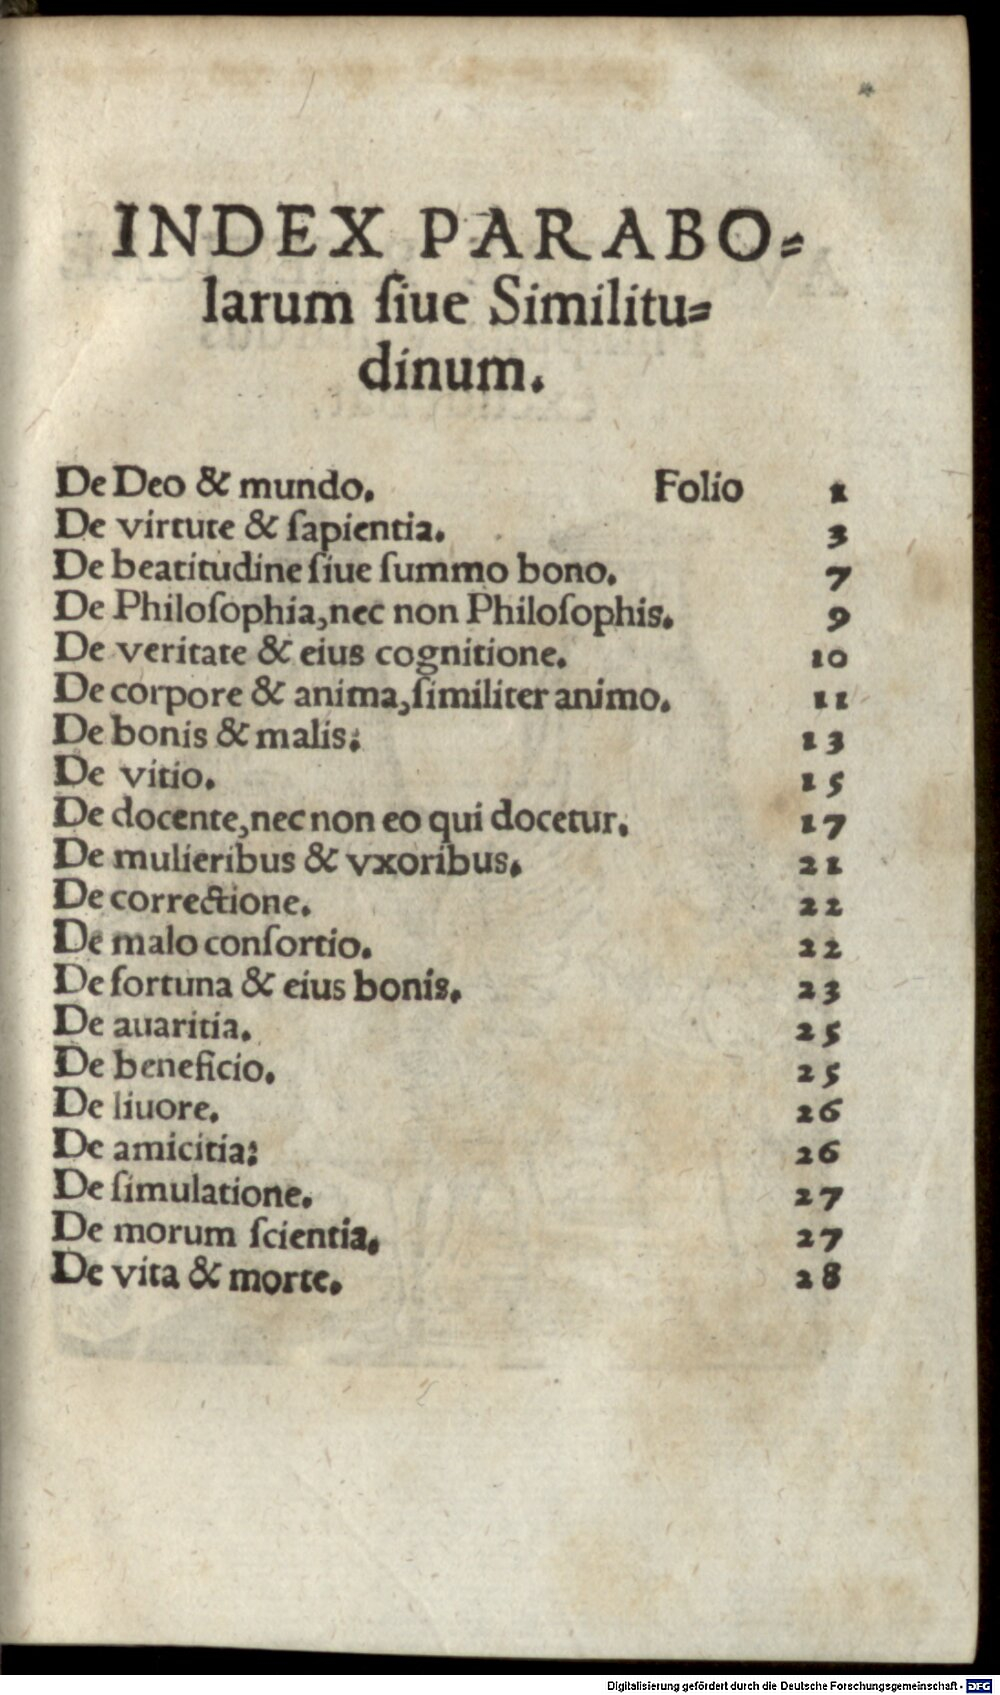 INDEX PARABO⸗
larum ſiue Similitu⸗
dinum.
De Deo & mundo. Folio 1
De virtute & ſapientia. 3
De beatitudine ſiue ſummo bono. 7
De Philoſophia, nec non Philoſophis. 9
De veritate & eius cognitione. 10
De corpore & anima, ſimiliter animo. 11
De bonis & malis: 13
De vitio. 15
De docente, nec non eo qui docetur. 17
De mulieribus & vxoribus. 21
De correctione. 22
De malo conſortio. 22
De fortuna & eius bonis. 23
De auaritia. 25
De beneficio. 25
De liuore. 26
De amicitia: 26
De ſimulatione. 27
De morum ſcientia. 27
De vita & morte. 28
Digitalisierung gefördert durch die Deutsche Forschungsgemeinschaft - DFG